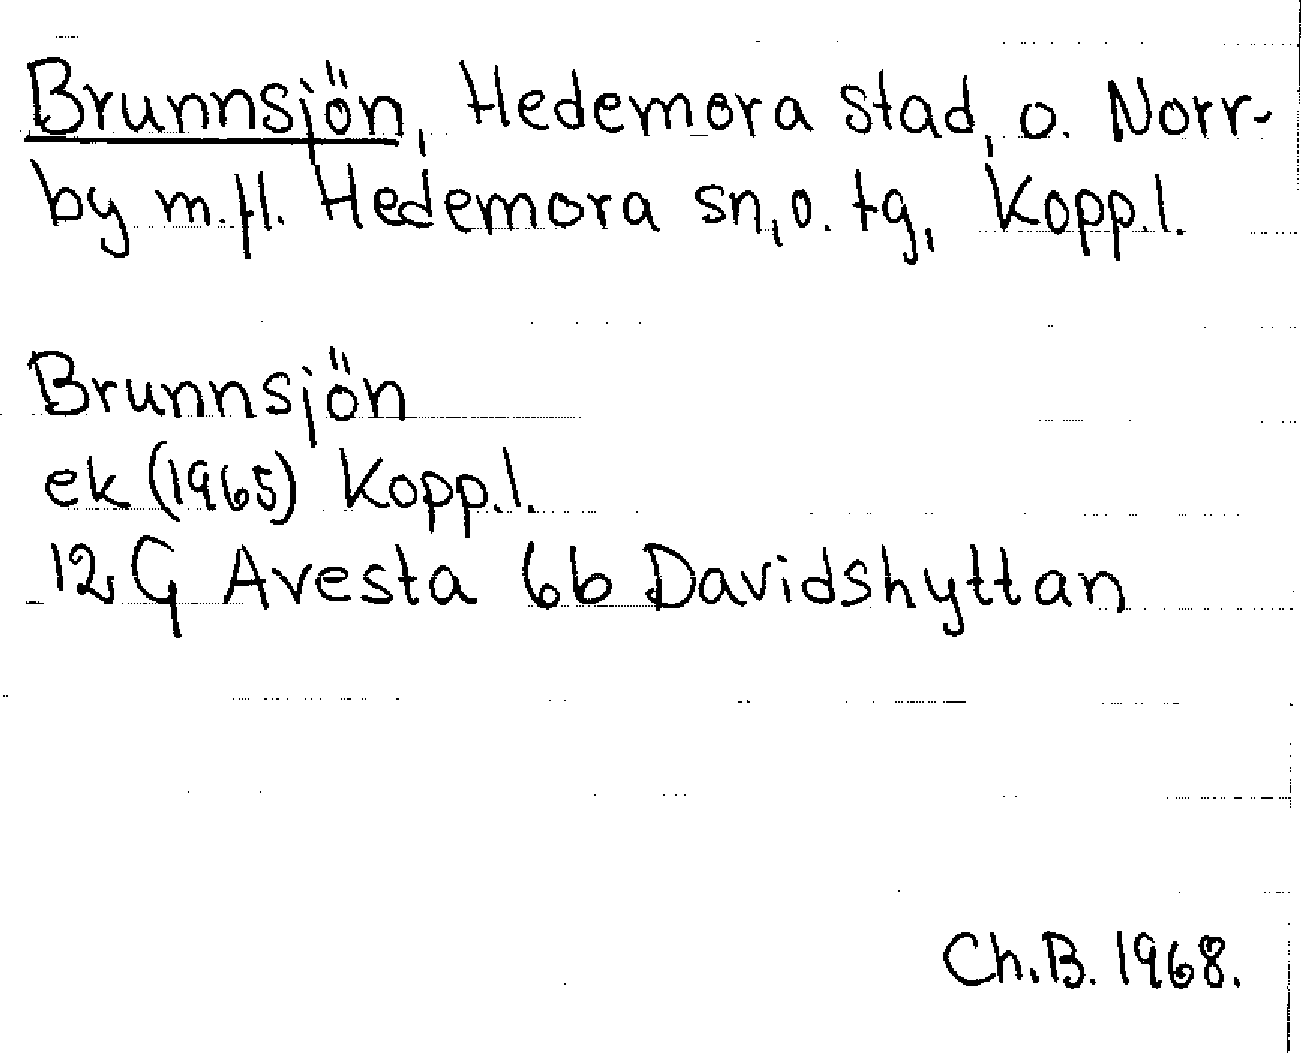 Brunnsjön, Hedemora stad, o. Norr-
by m.fl. Hedemora sn, o. tg, Kopp.l.
Brunnsjön
ek (1965) Kopp.l.
12 G Avesta 6b Davidshyttan
Ch.B. 1968.